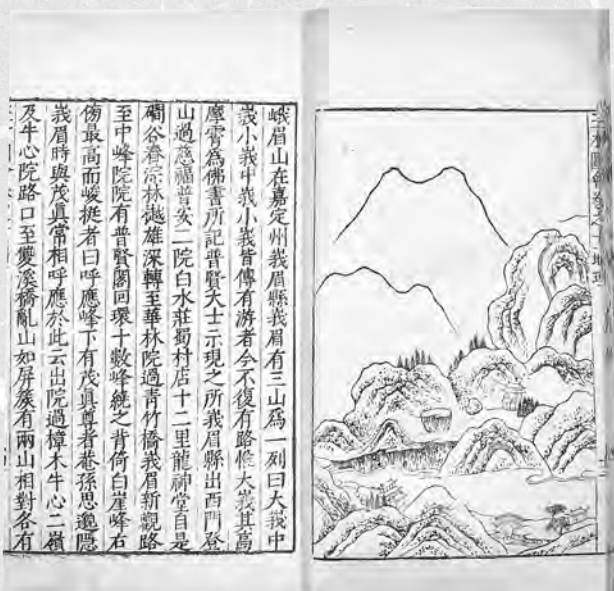 地理
峨眉山在嘉定州峩眉縣峩眉有三山爲一列曰大峩中
峩小峩中峩小峩皆傳有游者今不復有路惟大峩其高
摩霄爲佛書所記普賢大士示現之所峩眉縣出西門登
山過慈福普安二院白水莊蜀村店十二里龍神堂自是
磵谷舂淙林樾雄深轉至華林院過青竹橋峩眉新觀路
至中峰院院有普賢閣回環十數峰繞之背倚白崖峰右
傍最高而峻挺者曰呼應峰下有茂眞尊者菴孫思邈隱
峩眉時與茂眞常相呼應於此云出院過樟木牛心二嶺
及牛心院路口至雙溪橋亂山如屏簇有兩山相對各有